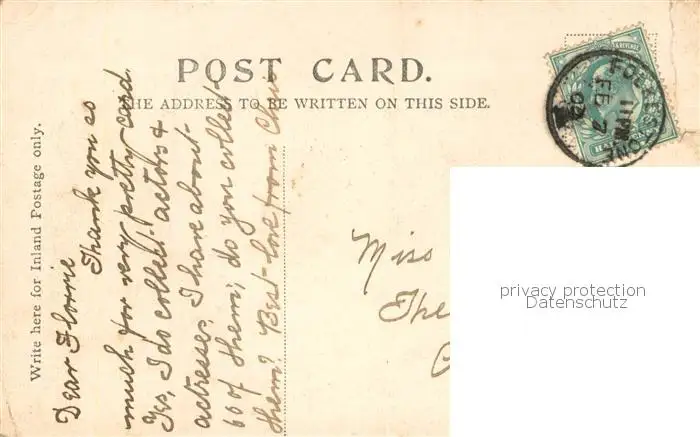 POST CARD.
THE ADDRESS TO BE WRITTEN ON THIS SIDE.
Write here for Inland Postage only.
Dear Florrie
Thank you so
much for very pretty card.
Yes, I do collect actors &
actresses. I have about
60 of them; do you collect
them? Best love from
Miss
The
& REVENUE
FOLKESTONE
11 PM
FE 7
privacy protection
Datenschutz